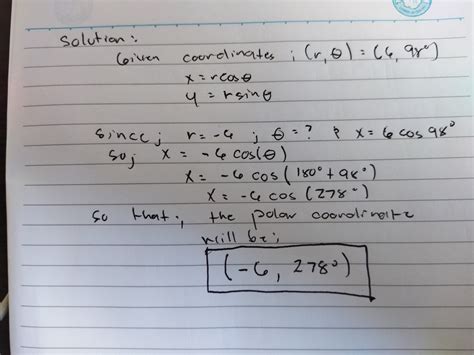 Solution:
Given coordinates ; (r, θ) = (6, 98°)
x = r cos θ
y = r sin θ
Since; r = -6 ; θ = ? & x = 6 cos 98°
So; x = -6 cos(θ)
x = -6 cos (180° + 98°)
x = -6 cos (278°)
So that;, the polar coordinate
will be;
(-6, 278°)